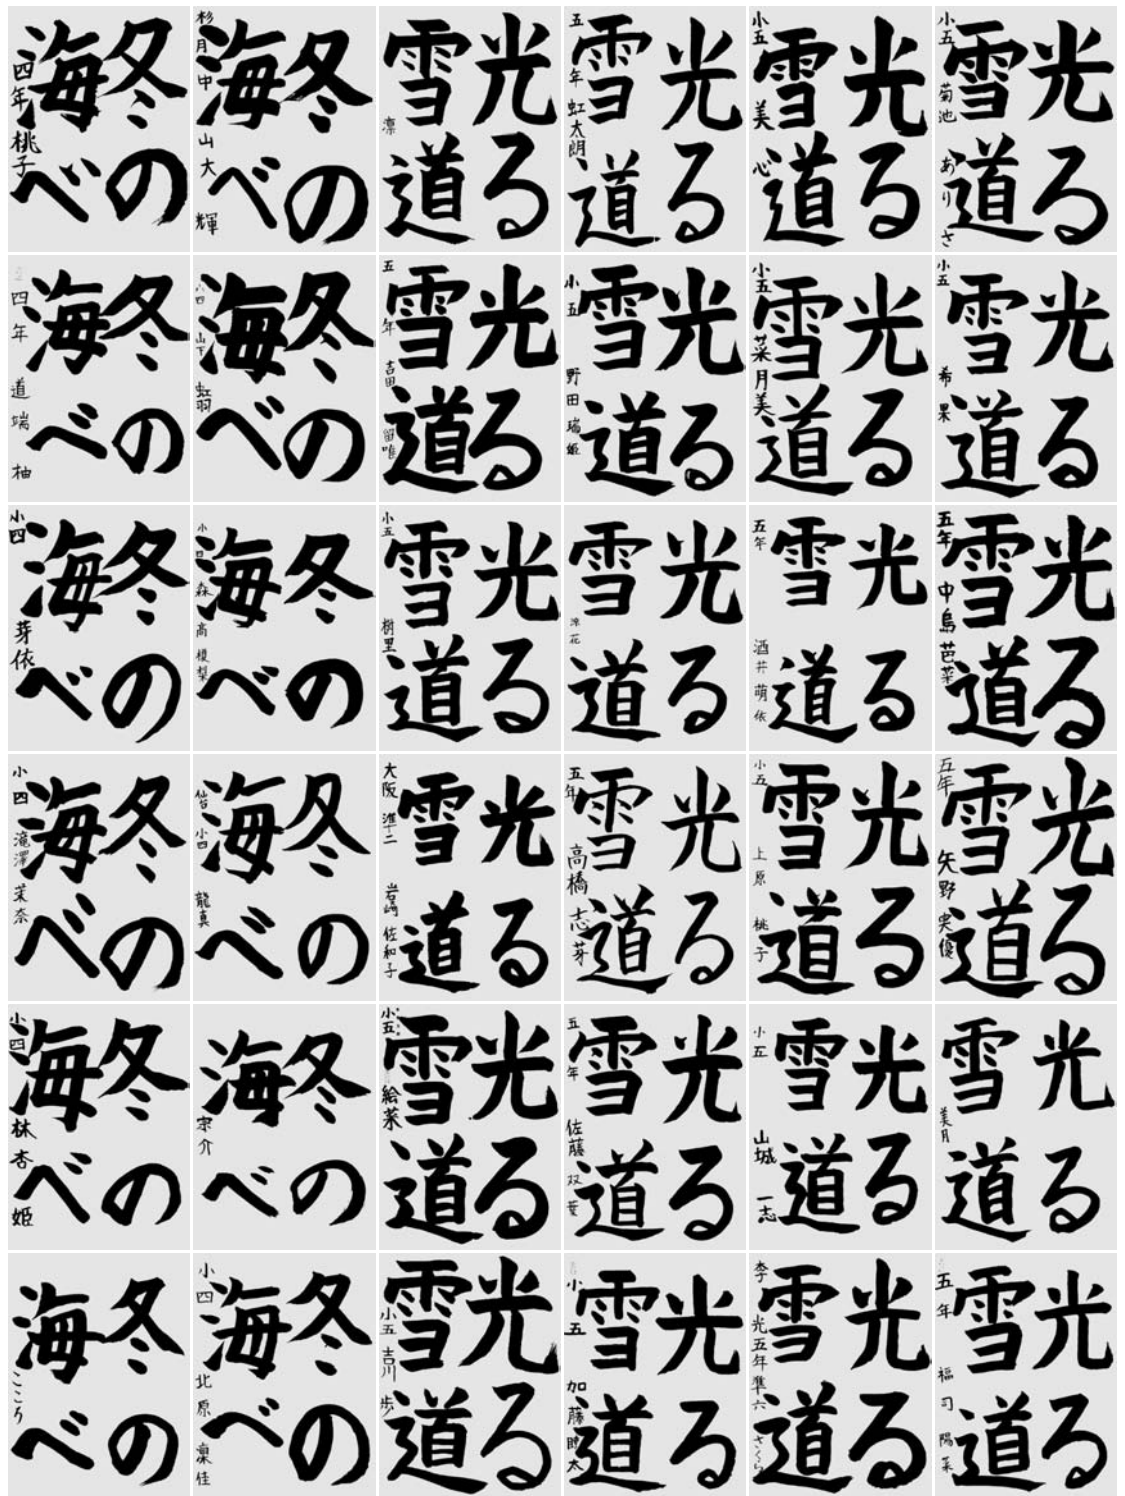 冬の
海べ
四年 桃子
冬の
海べ
杉月中 山大 輝
光る
雪道
凛
光る
雪道
五年 虹太朗
光る
雪道
小五 美心
光る
雪道
小五 菊池 ありさ
冬の
海べ
四年 道端 柚
冬の
海べ
山下 虹羽
光る
雪道
五年 吉田 留唯
光る
雪道
小五 野田 瑞姫
光る
雪道
小五 菜月美
光る
雪道
小五 希果
冬の
海べ
小四 芽依
冬の
海べ
小 森 高 榎梨
光る
雪道
小五 樹里
光る
雪道
涼花
光る
雪道
五年 酒井 萌依
光る
雪道
五年 中島 芭菜
冬の
海べ
小四 滝澤 茉奈
冬の
海べ
小四 龍真
光る
雪道
大阪 準二 岩崎 佐和子
光る
雪道
五年 高橋 志芽
光る
雪道
小五 上原 桃子
光る
雪道
五年 矢野 実優
冬の
海べ
小四 林 杏姫
冬の
海べ
宗介
光る
雪道
小五 絵菜
光る
雪道
五年 佐藤 双葉
光る
雪道
小五 山城 一志
光る
雪道
美月
冬の
海べ
こころ
冬の
海べ
小四 北原 凜佳
光る
雪道
小五 吉川 歩
光る
雪道
小五 加藤 太
光る
雪道
李光 五年 準六 さくら
光る
雪道
五年 福司 陽菜